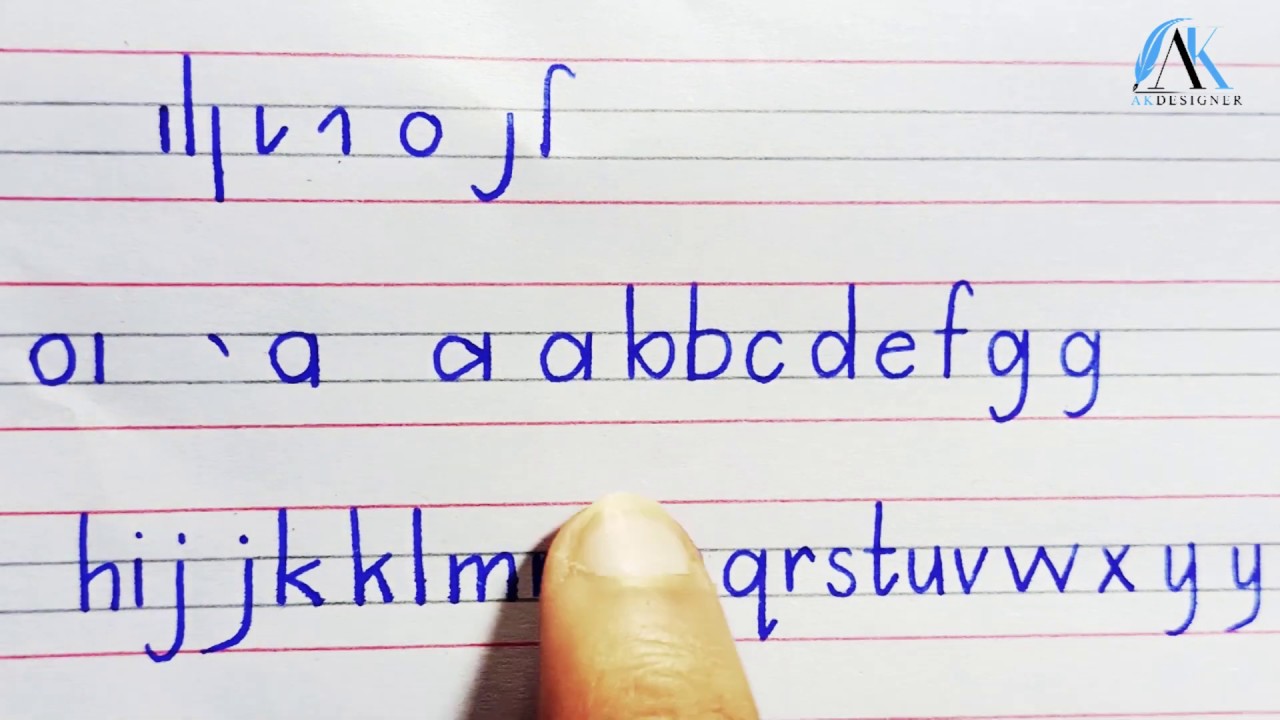 AK
AKDESIGNER
a a a b b c d e f g g
h i j j k k l m q r s t u v w x y y